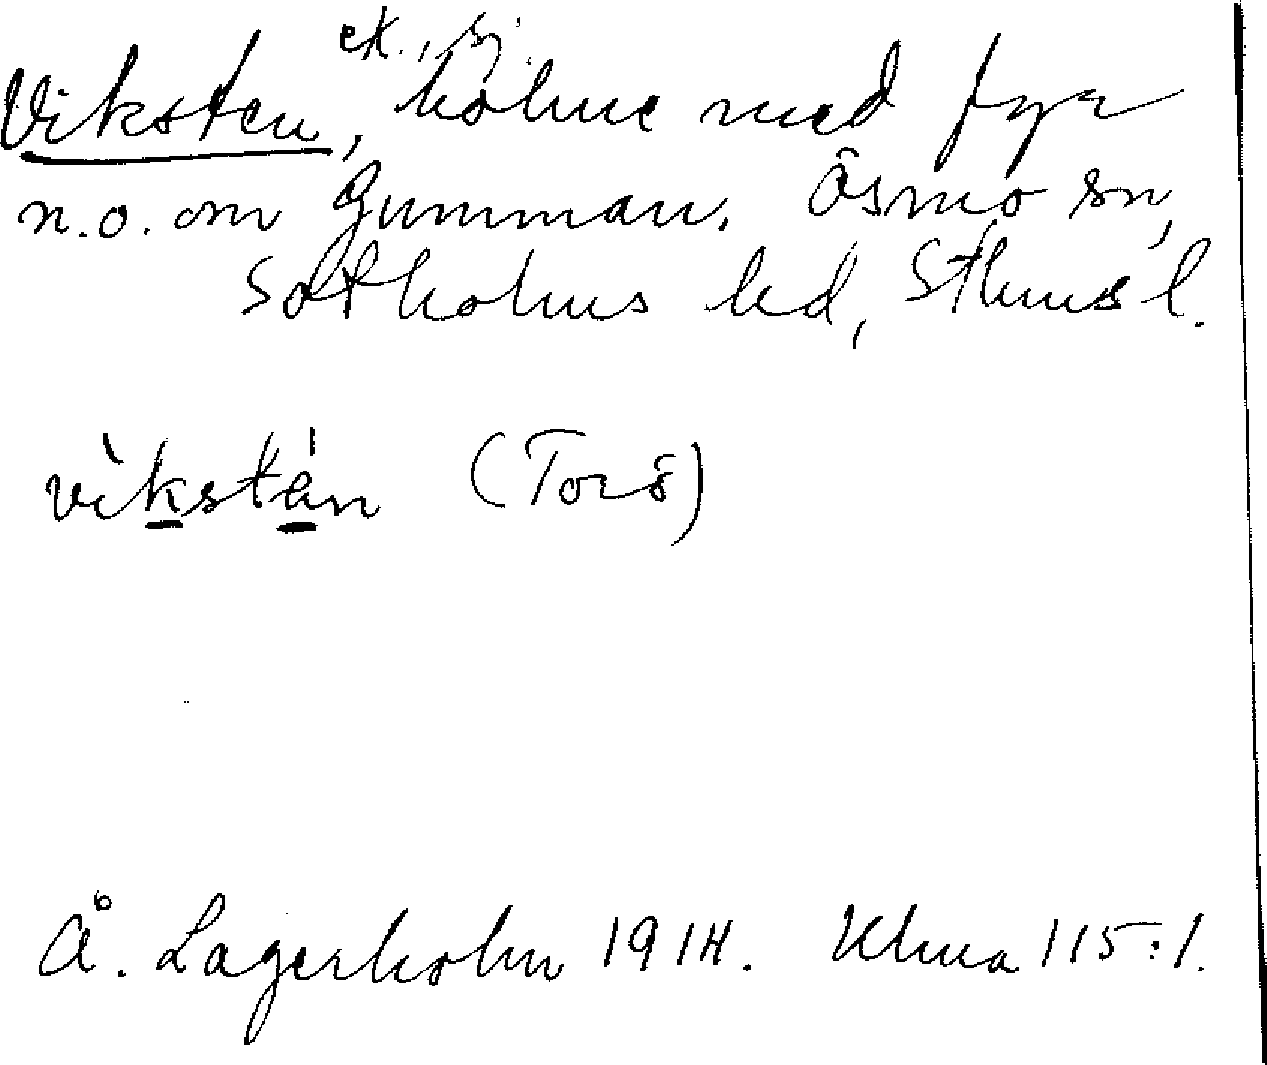 ek., sj.
Viksten, holme med fyr
n.o. om Gumman. Ösmo sn,
Sotholms hd, Sthms l.
vìkstén (Torö)
Å. Lagerholm 1914. Uhma 115:1.